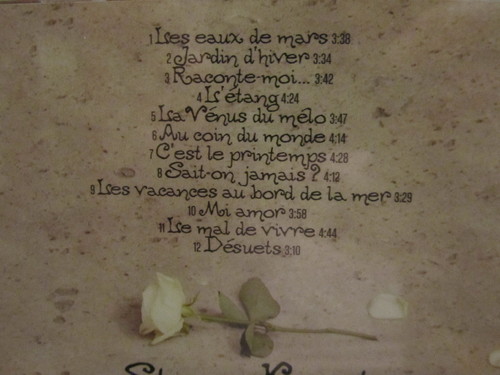 1 Les eaux de mars 3:38
2 Jardin d'hiver 3:34
3 Raconte-moi... 3:42
4 L'étang 4:24
5 La Vénus du mélo 3:47
6 Au coin du monde 4:14
7 C'est le printemps 4:28
8 Sait-on jamais? 4:12
9 Les vacances au bord de la mer 3:29
10 Mi amor 3:58
11 Le mal de vivre 4:44
12 Désuets 3:10